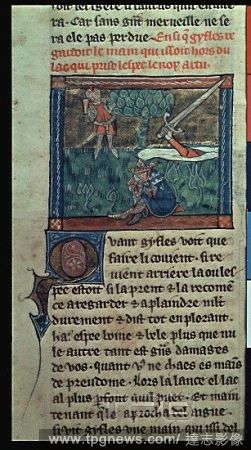 ra. Car sans grant merveille ne se
ra ele pas perdue. Ensi q̄ gyfles re
gardoit le main qui issoit hors du
lac qui prist lespee le roy artu.
Quant gyfles voit que
faire li couient. si re
uient arriere la ou les
pee estoit si la prent & la recomē
ce a regarder & a plaindre mlt
durement & dist tot en plorant.
ha. espee boine & bele plus que nu
le autre tant est grans damages
de vos. quant vous ne chaes es mais
de preudome. Lors la lance el lac
al plus pfont quil puet. Et main
tenant q̄le aprocha del aigue.
si vit gyfles une main qui issi del
www.tpgnews.com/ 達志影像